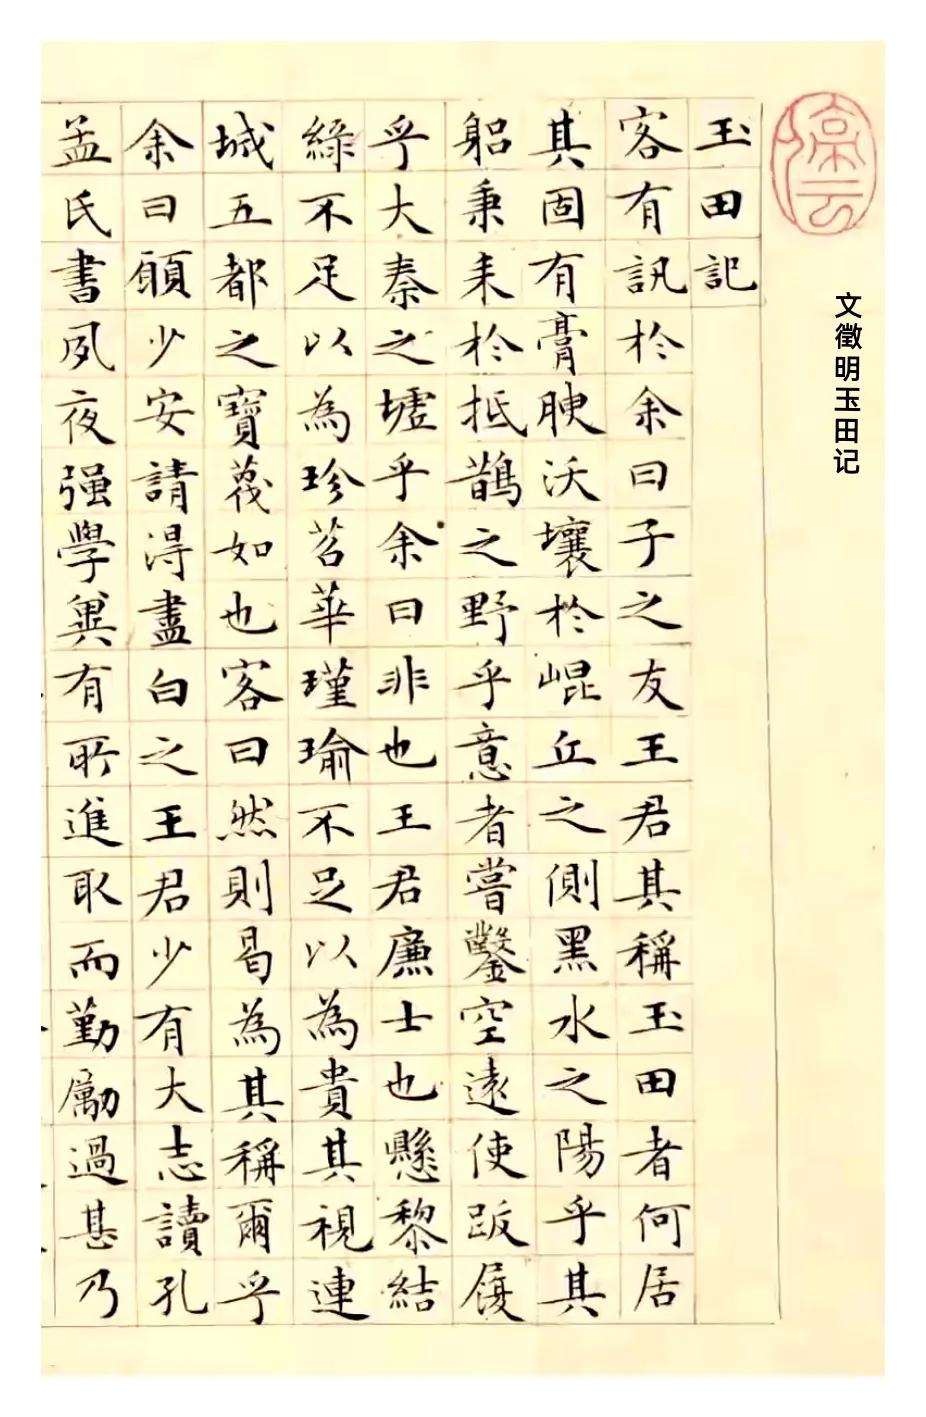 停云
文徵明玉田记
玉田記
客有訊於余曰子之友王君其稱玉田者何居
其固有膏腴沃壤於崐丘之側黑水之陽乎其
躬秉耒於抵鵲之野乎意者嘗鑿空遠使跋履
乎大秦之墟乎余曰非也王君廉士也懸黎結
綠不足以為珍苕華瑾瑜不足以為貴其視連
城五都之寶蔑如也客曰然則曷為其稱爾乎
余曰願少安請得盡白之王君少有大志讀孔
孟氏書夙夜强學兾有所進取而勤勵過甚乃